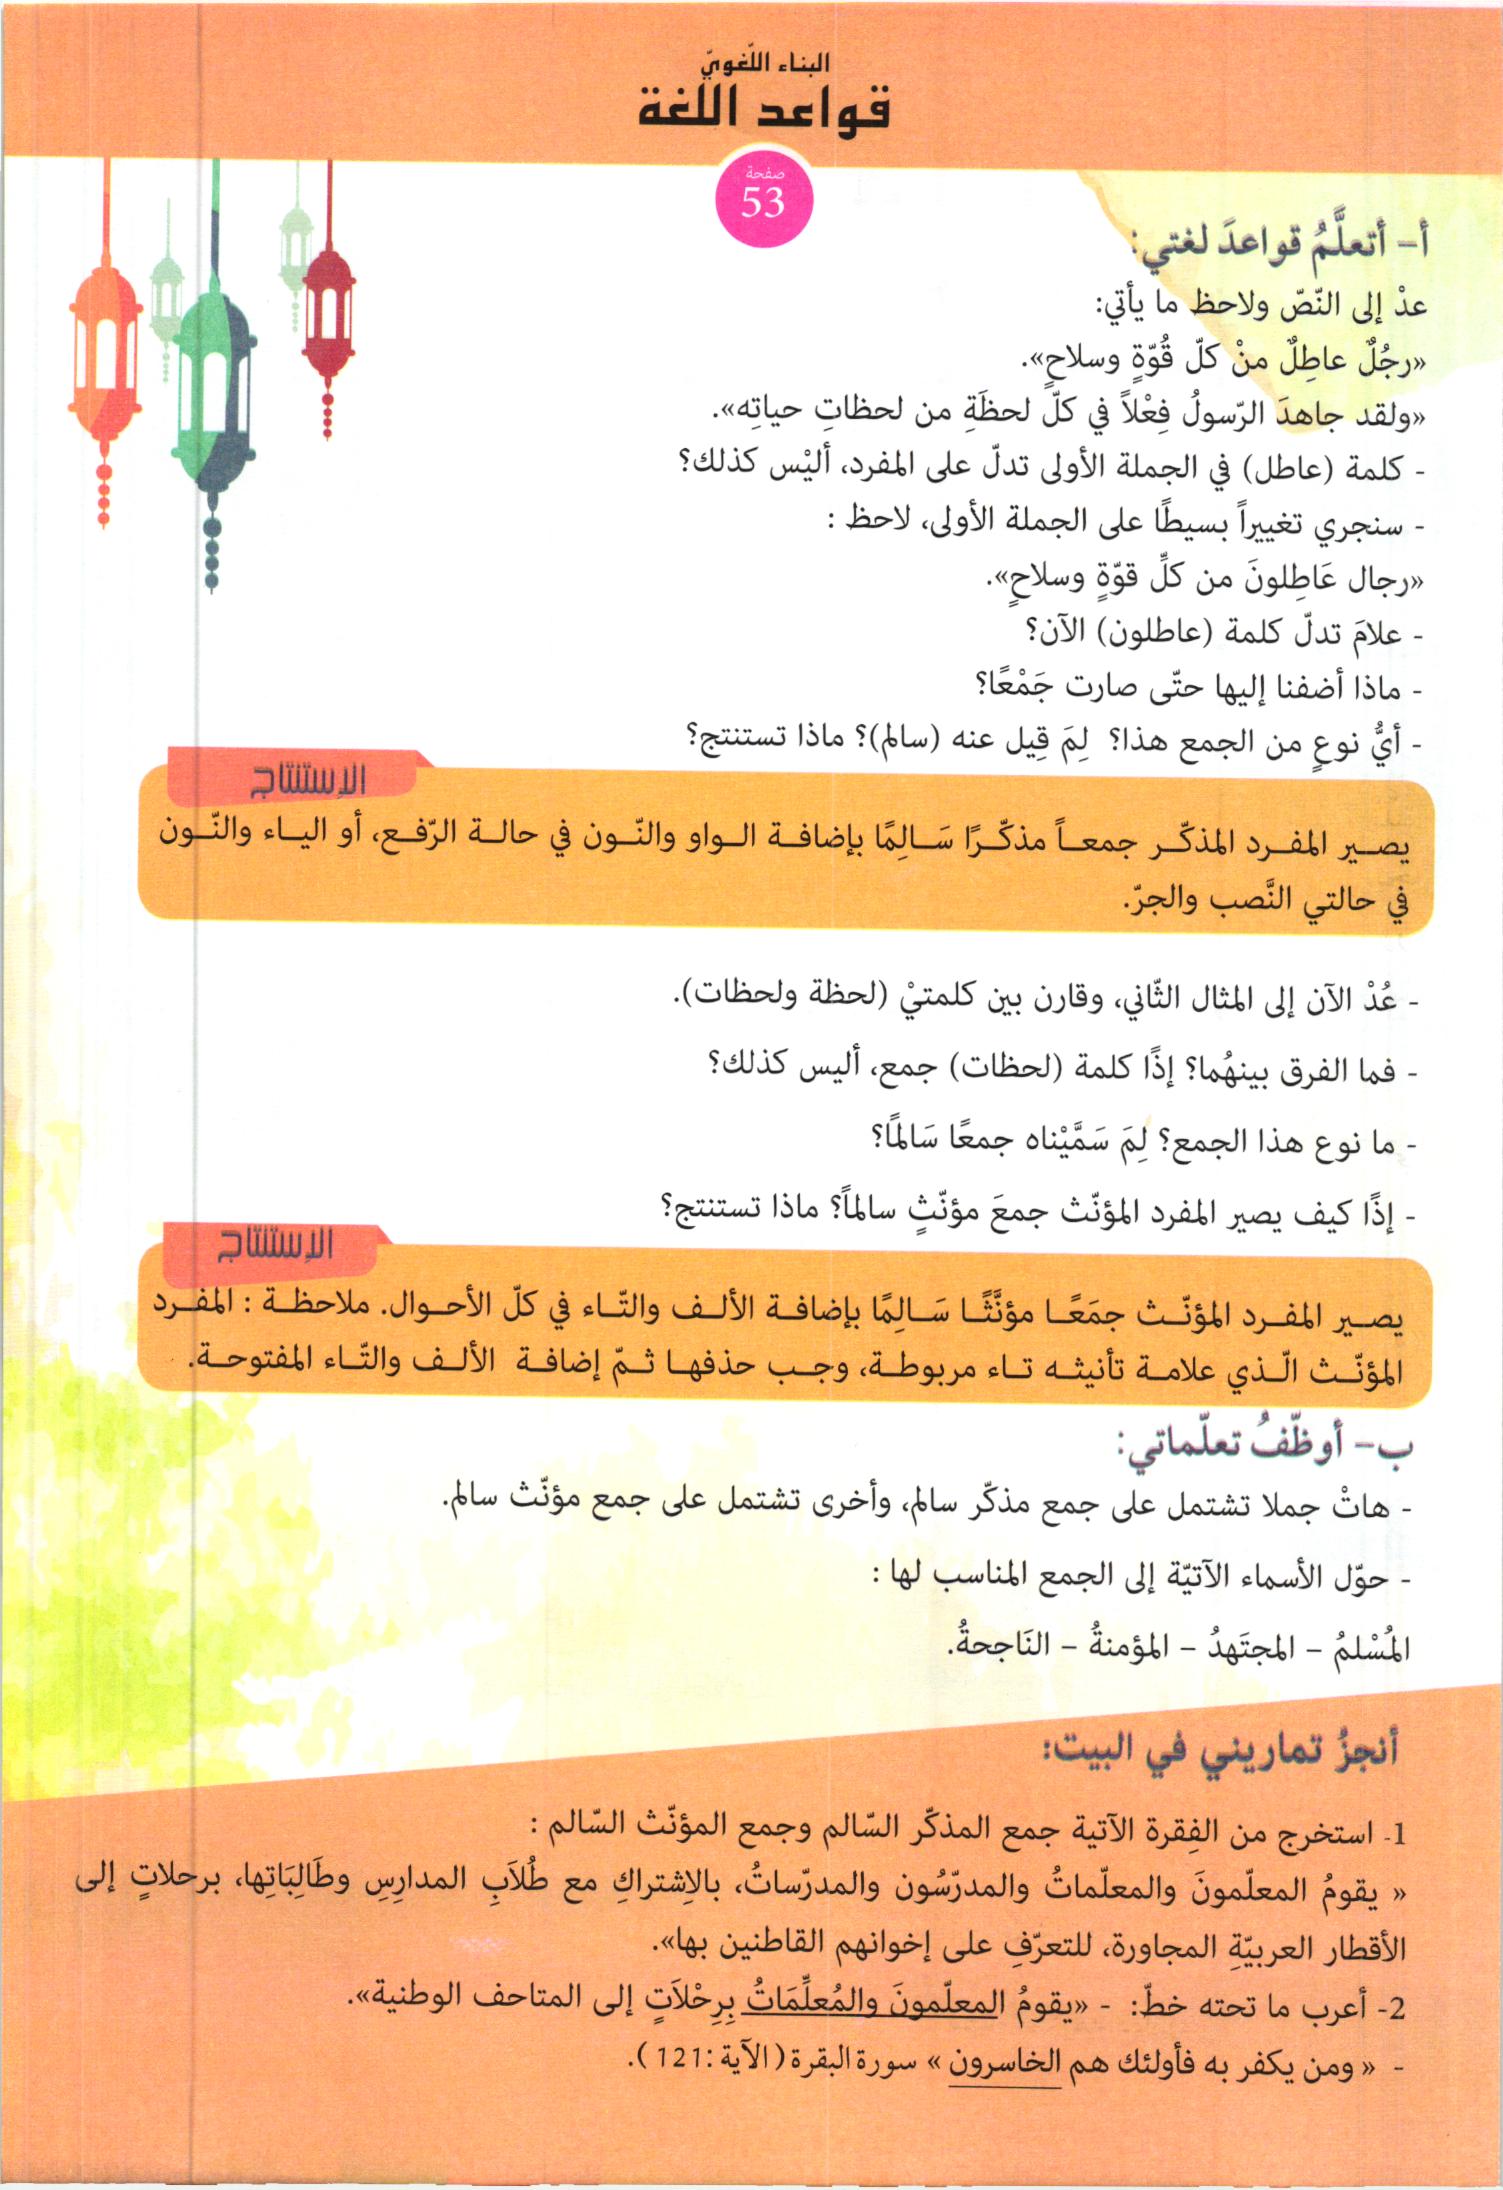 البناء اللّغويّ
قواعد اللغة
صفحة
53
أ– أتعلَّمُ قواعدَ لغتي:
عدْ إلى النّصّ ولاحظ ما يأتي:
«رجُلٌ عاطِلٌ منْ كلّ قُوّةٍ وسلاحٍ».
«ولقد جاهدَ الرّسولُ فِعْلاً في كلّ لحظَةِ من لحظاتِ حياتِه».
- كلمة (عاطل) في الجملة الأولى تدلّ على المفرد، أليْس كذلك؟
- سنجري تغييراً بسيطًا على الجملة الأولى، لاحظ :
«رجال عَاطِلونَ من كلِّ قوّةٍ وسلاحٍ».
- علامَ تدلّ كلمة (عاطلون) الآن؟
- ماذا أضفنا إليها حتّى صارت جَمْعًا؟
- أيُّ نوعٍ من الجمع هذا؟ لِمَ قِيل عنه (سالم)؟ ماذا تستنتج؟
الإستنتاج
يصير المفرد المذكّر جمعاً مذكّرًا سَالِمًا بإضافة الواو والنّون في حالة الرّفع، أو الياء والنّون
في حالتي النَّصب والجرّ.
- عُدْ الآن إلى المثال الثّاني، وقارن بين كلمتيْ (لحظة ولحظات).
- فما الفرق بينهُما؟ إذًا كلمة (لحظات) جمع، أليس كذلك؟
- ما نوع هذا الجمع؟ لِمَ سَمَّيْناه جمعًا سَالمًا؟
- إذًا كيف يصير المفرد المؤنّث جمعَ مؤنّثٍ سالماً؟ ماذا تستنتج؟
الإستنتاج
يصير المفرد المؤنّث جمَعًا مؤنَّثًا سَالِمًا بإضافة الألف والتّاء في كلّ الأحوال. ملاحظة : المفرد
المؤنّث الّذي علامة تأنيثه تاء مربوطة، وجب حذفها ثمّ إضافة الألف والتّاء المفتوحة.
ب– أوظّفُ تعلّماتي:
- هاتْ جملا تشتمل على جمع مذكّر سالم، وأخرى تشتمل على جمع مؤنّث سالم.
- حوّل الأسماء الآتيّة إلى الجمع المناسب لها :
المُسْلمُ – المجتَهدُ – المؤمنةُ – النَاجحةُ.
أنجزُ تماريني في البيت:
1- استخرج من الفِقرة الآتية جمع المذكّر السّالم وجمع المؤنّث السّالم :
« يقومُ المعلّمونَ والمعلّماتُ والمدرّسُون والمدرّساتُ، بالاِشتراكِ مع طُلاَبِ المدارِسِ وطَالِبَاتِها، برحلاتٍ إلى
الأقطار العربيّةِ المجاورة، للتعرّفِ على إخوانهم القاطنين بها».
2- أعرب ما تحته خطّ: - «يقومُ المعلّمونَ والمُعلِّمَاتُ بِرِحْلاَتٍ إلى المتاحف الوطنية».
- « ومن يكفر به فأولئك هم الخاسرون » سورة البقرة (الآية :121 ).